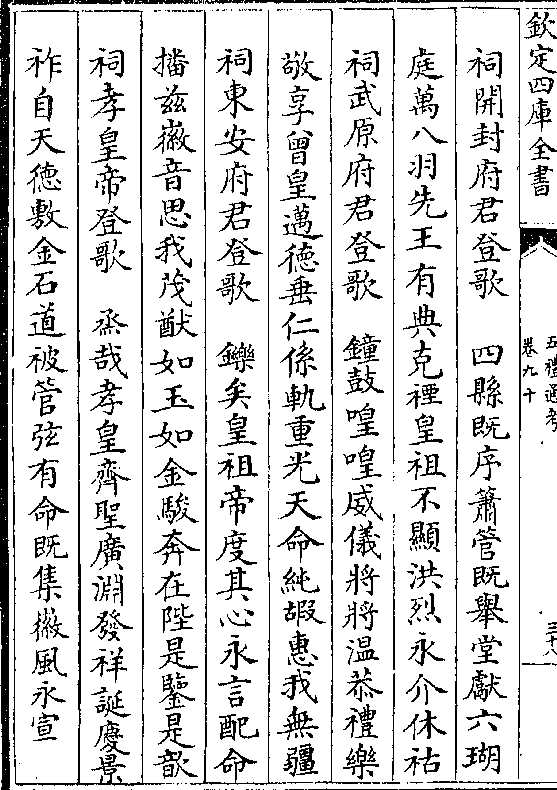 欽定四庫全書
五禮通考
卷九十
三十八
祠開封府君登歌　四縣既序簫管既舉堂獻六瑚
庭萬八羽先王有典克禋皇祖不顯洪烈永介休祜
祠武原府君登歌　鐘鼓喤喤威儀將將温恭禮樂
敬享曾皇邁德垂仁係軌重光天命純嘏惠我無疆
祠東安府君登歌　鑠矣皇祖帝度其心永言配命
播兹徽音思我茂猷如玉如金駿奔在陛是鑒是歆
祠孝皇帝登歌　烝哉孝皇齊聖廣淵發祥誕慶景
祚自天德敷金石道被管弦有命既集徽風永宣